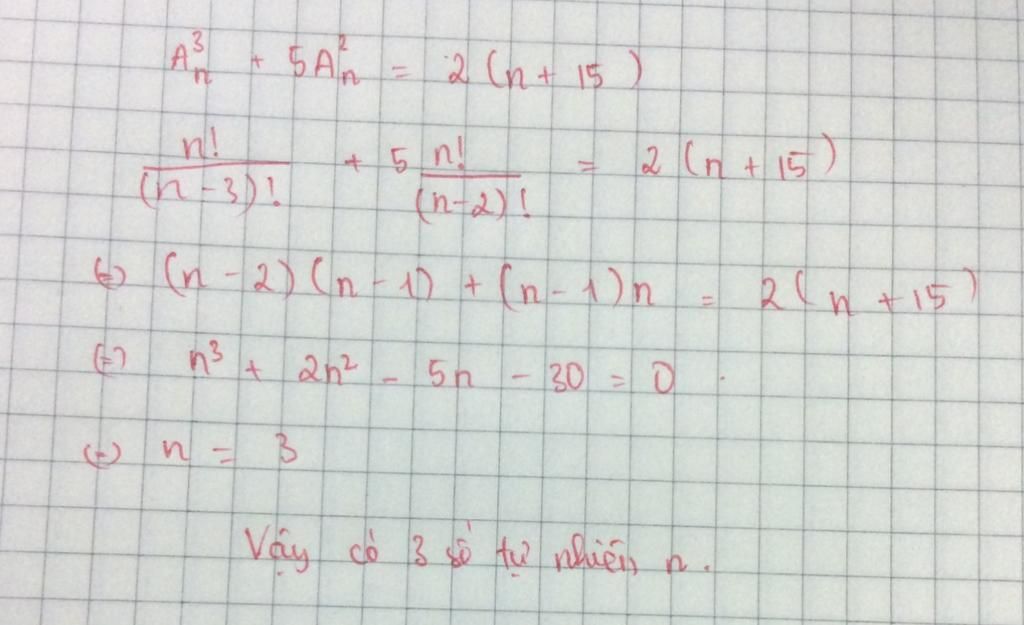 A³ₙ + 5A²ₙ = 2(n + 15)
n!/(n-3)! + 5 n!/(n-2)! = 2(n + 15)
(=) (n - 2)(n - 1) + (n - 1)n = 2(n + 15)
(=) n³ + 2n² - 5n - 30 = 0.
(=) n = 3
Vậy có 3 số tự nhiên n.